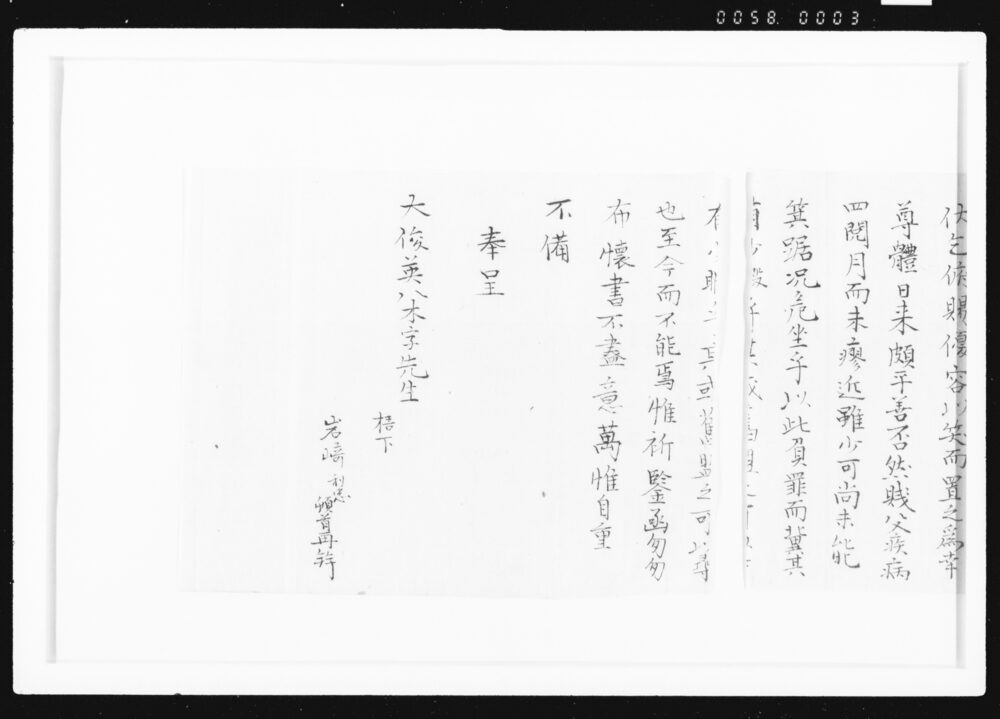 0058. 0003
伏乞俯賜優容以笑而置之爲幸
尊體日来頗平善否然賤父疾病
四閱月而未瘳近雖少可尚未能
箕踞况危坐乎以此負罪而冀其
其或舊盟之可尋
也至今而不能焉惟祈鑒函匆匆
布懷書不盡意萬惟自重
不備
奉呈
大俊英八木字先生
梧下
岩﨑
頓首再拝